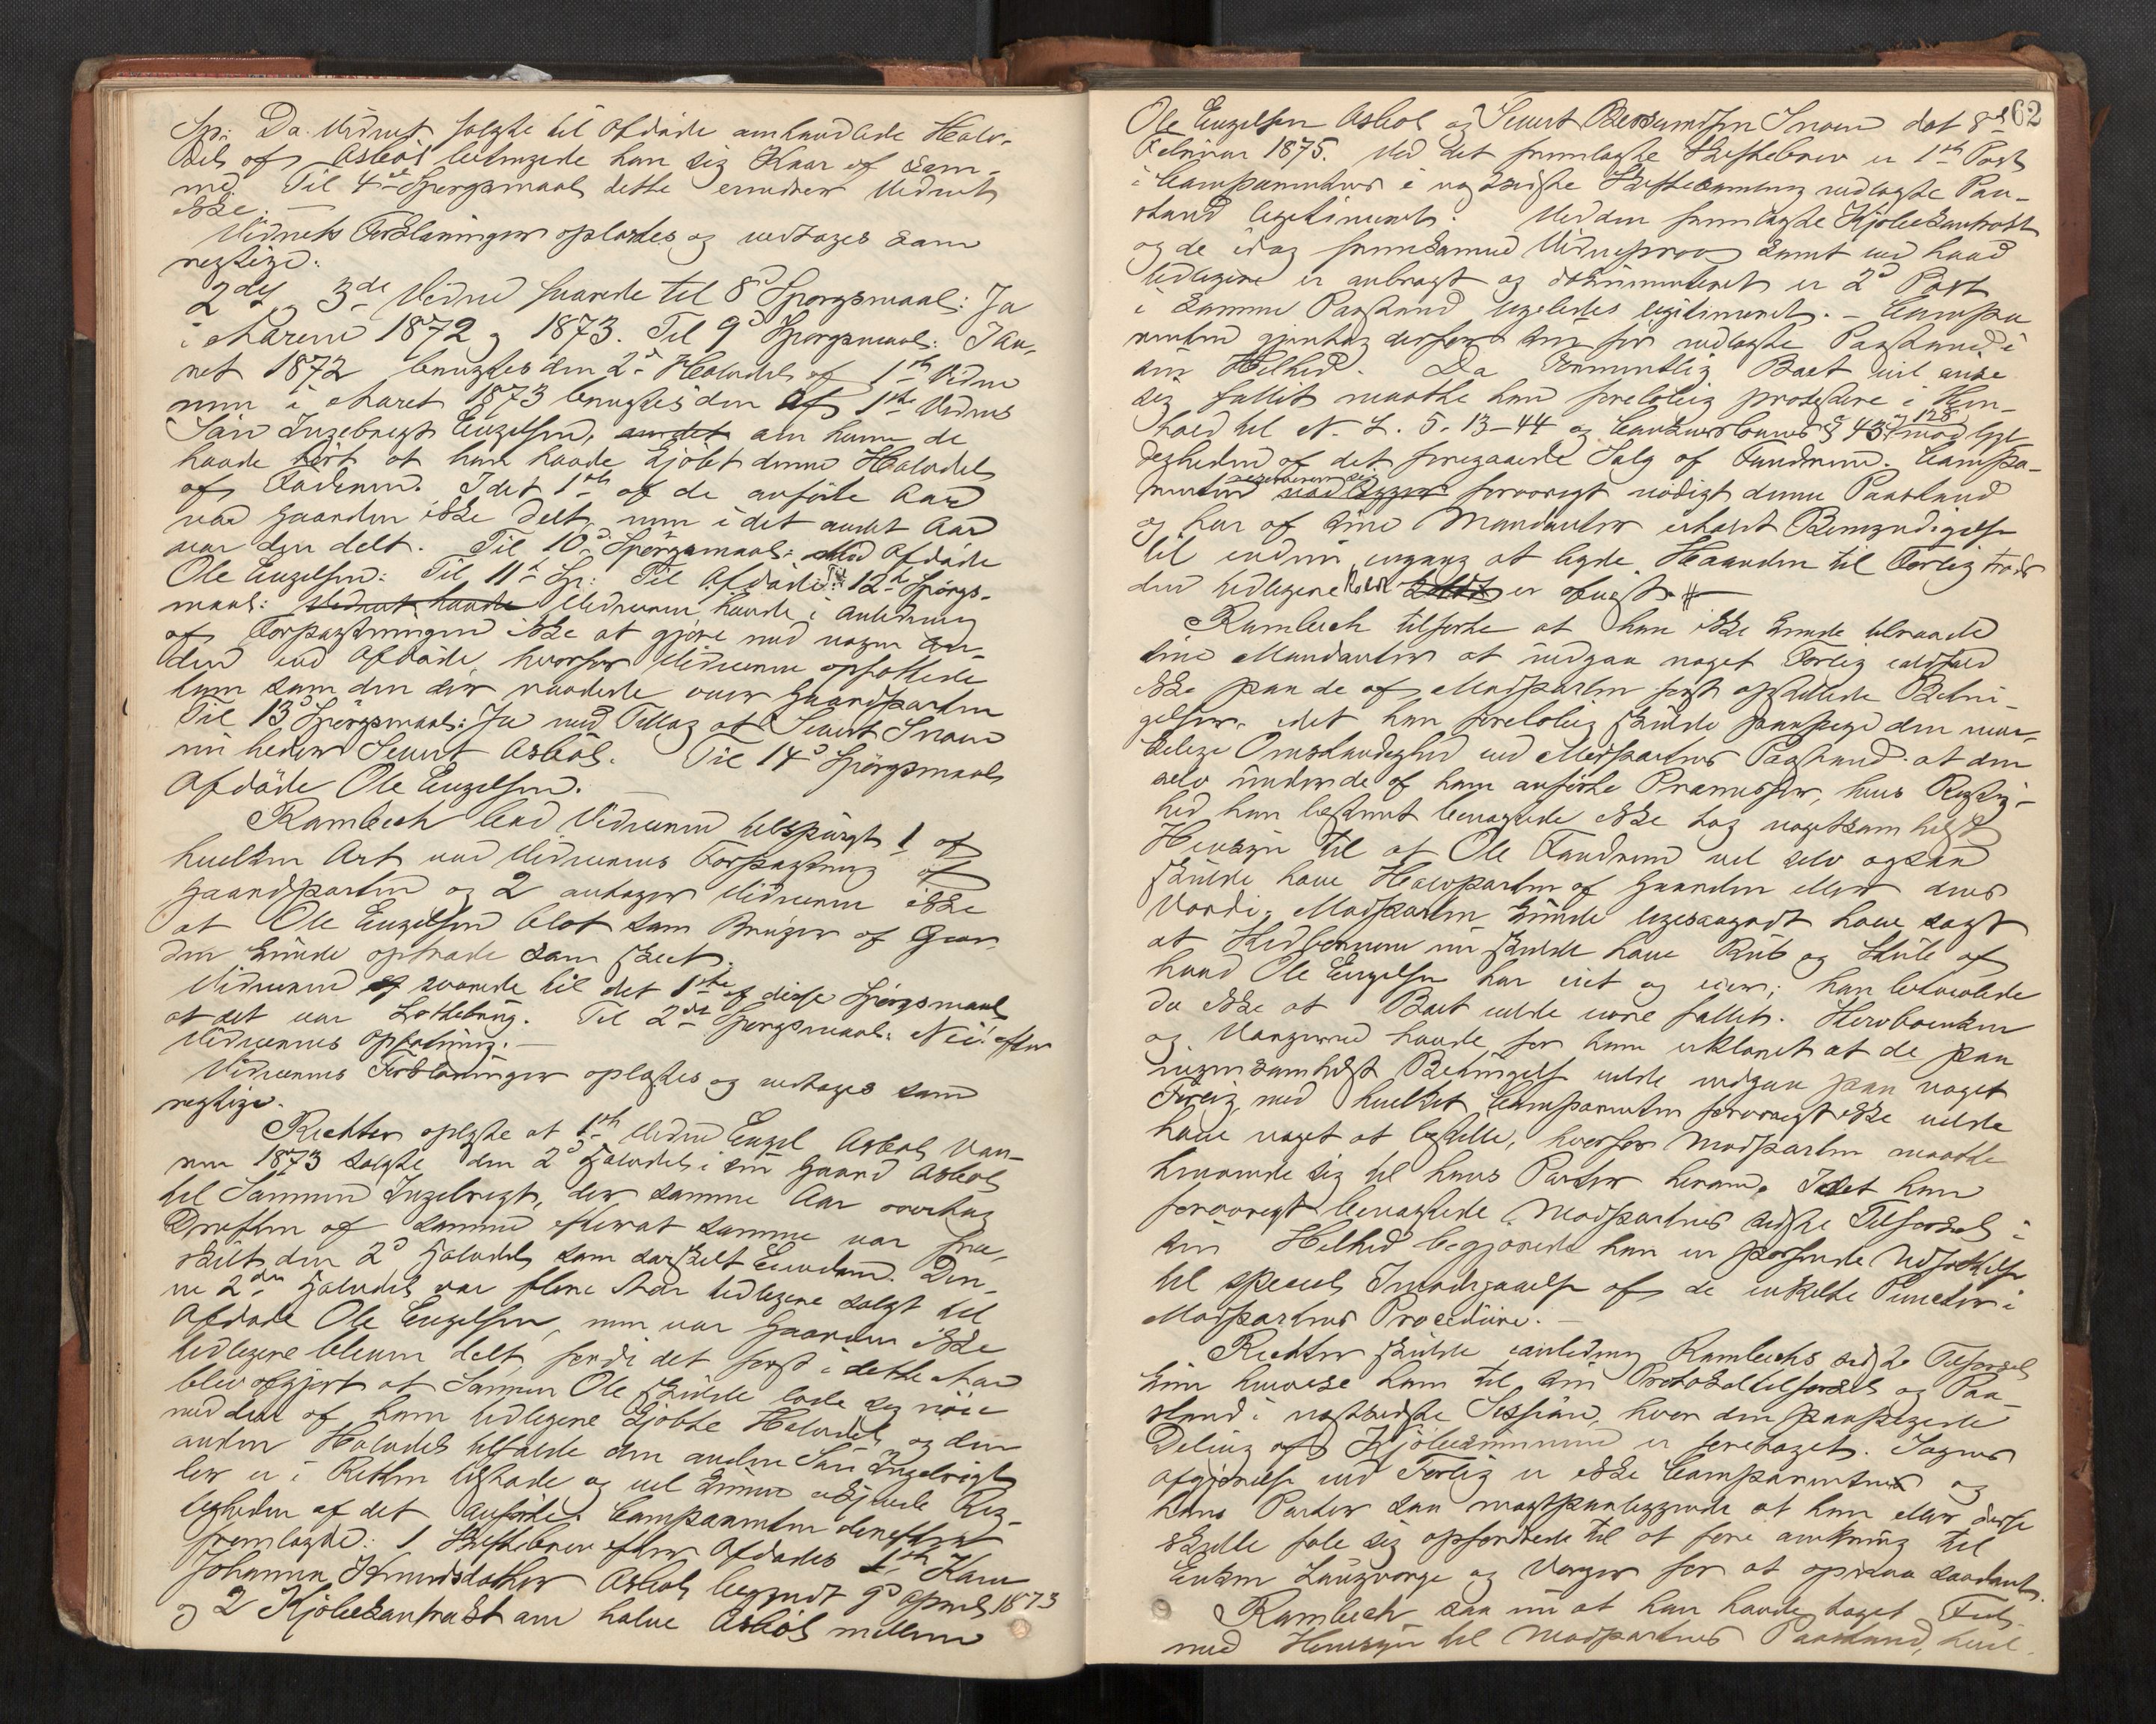 Sp: Da Vidnet solgte til Afdøde omhandlede Halv-
del af Asbøl betingede han sig Kaar af sam-
me. Til 4de Spørgsmaal dette erindrer Vidnet
ikke. —
Vidnets Forklaringer oplæstes og vedtoges som
rigtige.
2det og 3de Vidne svarede til 8d Spørgsmaal: Ja
i Aarene 1872 og 1873. Til 9d Spørgsmaal: I Aa-
ret 1872 benyttes den 2d Halvdel af 1ste Vidne
men i Aaret 1873 benyttes den af 1ste Vidnes
Søn Ingebrigt Engelsen, om ham de
havde hørt at han havde kjøbt denne Halvdel
af Faderen. I det 1ste af de anførte Aar
var Gaarden ikke delt, men i det andet Aar
var den delt. Til 10d Spørgsmaal: Med Afdøde
Ole Engelsen. Til 11te Sp: Til Afdøde. Til 12te Spørgs-
maal: Vidnet havde Vidnerne havde i Anledning
af Forpagtningen ikke at gjøre med nogen an-
den end Afdøde, hvorfor Vidnerne opfattede
ham som den der raadede over Gaardparten
Til 13d Spørgsmaal: Ja med Tillæg at Sivert Snoen
nu heder Sivert Asbøl. Til 14d Spørgsmaal
Afdøde Ole Engelsen. —
Rambech bad Vidnerne tilspurgt 1 af
hvilken Art var Vidnernes Forpagtning af
Gaardparten og 2 antager Vidnerne ikke
at Ole Engelsen blot som Bruger af Gaar-
den kunde optræde som skeet.
Vidnerne svarede til det 1ste af disse Spørgsmaal
at det var Lottebrug. Til 2det Spørgsmaal: Nei! efter
Vidnernes Opfatning. —
Vidnernes Forklaringer oplæstes og vedtoges som
rigtige.
Richter oplyste at 1ste Vidne Engel Asbøl Vaa-
ren 1873 solgte den 2d Halvdel i sin Gaard Asbøl
til Sønnen Ingebrigt, der samme Aar overtog
Driften af samme efterat samme var fra-
skilt den 2d Halvdel som særskilt Eiendom. Den-
ne 2den Halvdel var flere Aar tidligere solgt til
Afdøde Ole Engelsen, men var Gaarden ikke
tidligere bleven delt, fordi det først i dette Aar
blev afgjort at Sønnen Ole skulde lade sig nøie
med den af ham tidligere kjøbte Halvdel og den
anden Halvdel tilfalde den anden Søn Ingebrigt
der er i Retten tilstæde og vil kunne afgjøre Rig-
tigheden af det anførte. Comparenten derefter
fremlagde: 1 Skiftebrev efter Afdødes 1ste Kone
Johanna Amundsdatter Asbøl begyndt 9d April 1873
og 2 Kjøbekontrakt om halve Asbøl mellem
62
Ole Engelsen Asbøl og Sivert Snoen dat 8de
Februar 1875. Ved det fremlagte Skiftebrev er 1ste Post
i Comparentens i næstsidste Skiftesamling nedlagte Paa-
stand legitimeret. Ved den fremlagte Kjøbekontrakt
og de idag fremkomne Vidneprov samt ved hvad
tidligere er anbragt og dokumenteret er 2d Post
i samme Paastand ligeledes legitimeret. — Compa-
renten gjentog derfor sin før nedlagte Paastand i
sin Helhed. Da formentlig Boet vil anse
sig fallit maatte han foreløbig protestere i Hen-
hold til N. L. 5-13-44 og Concursloven § 43 og 128 mod Gyl-
digheden af det foregaaende Salg af Fandrem. Compa-
renten reserverer sig forøvrigt nødigt denne Paastand
og har af sine Mandanter erholdt Bemyndigelse
til endnu engang at byde Haanden til Forlig trods
den tidligere Kulde er afvist. —
Rambech tilførte at han ikke kunde tilraade
sine Mandanter at indgaa noget Forlig ialdfald
ikke paa de af Modparten først opstillede Betin-
gelser, idet han foreløbig skulde paapege den mær-
kelige Omstændighed ved Modpartens Paastand at den
selv under de af ham anførte Præmisser, hvis Rigtig-
hed han bestemt benægtede ikke tog nogetsomhelst
Hensyn til at Ole Fandrem vel selv ogsaa
skulde have Halvparten af Gaarden eller dens
Værdi. Modparten kunde ligesaagodt have sagt
at Stedbørnene nu skulde have Rub og Stub af
hvad Ole Engelsen har eiet og eier; han betvivlede
da ikke at Boet vilde være fallit. Stervboenken
og Værgerne havde for ham erklæret at de paa
ingensomhelst Betingelse vilde indgaa paa noget
Forlig med hvilket Comparenten forøvrigt ikke vilde
have noget at bestille, hvorfor Modparten maatte
henvende sig til hans Parter herom. Idet han
forøvrigt benægtede Modpartens sidste Tilførsel i
sin Helhed begjærede han en passende Udsættelse
til speciel Imødegaaelse af de enkelte Puncter i
Modpartens Procedure. —
Richter skulde i anledning Rambechs sidste Tilførsel
kun henvise ham til sin Protokoltilførsel og Paa-
stand i næstsidste Session, hvor den paapegede
Deling af Kjøbesummen er foretaget. Sagens
Afgjørelse ved Forlig er ikke Comparenten og
hans Parter saa magtpaaliggende at han eller disse
skulle føle sig opfordrede til at føre anketing til
Enken Laugværge og Værger for at opnaa saadant.
Rambech saa nu at han havde taget Feil
med Hensyn til Modpartens Paastand, hvil-